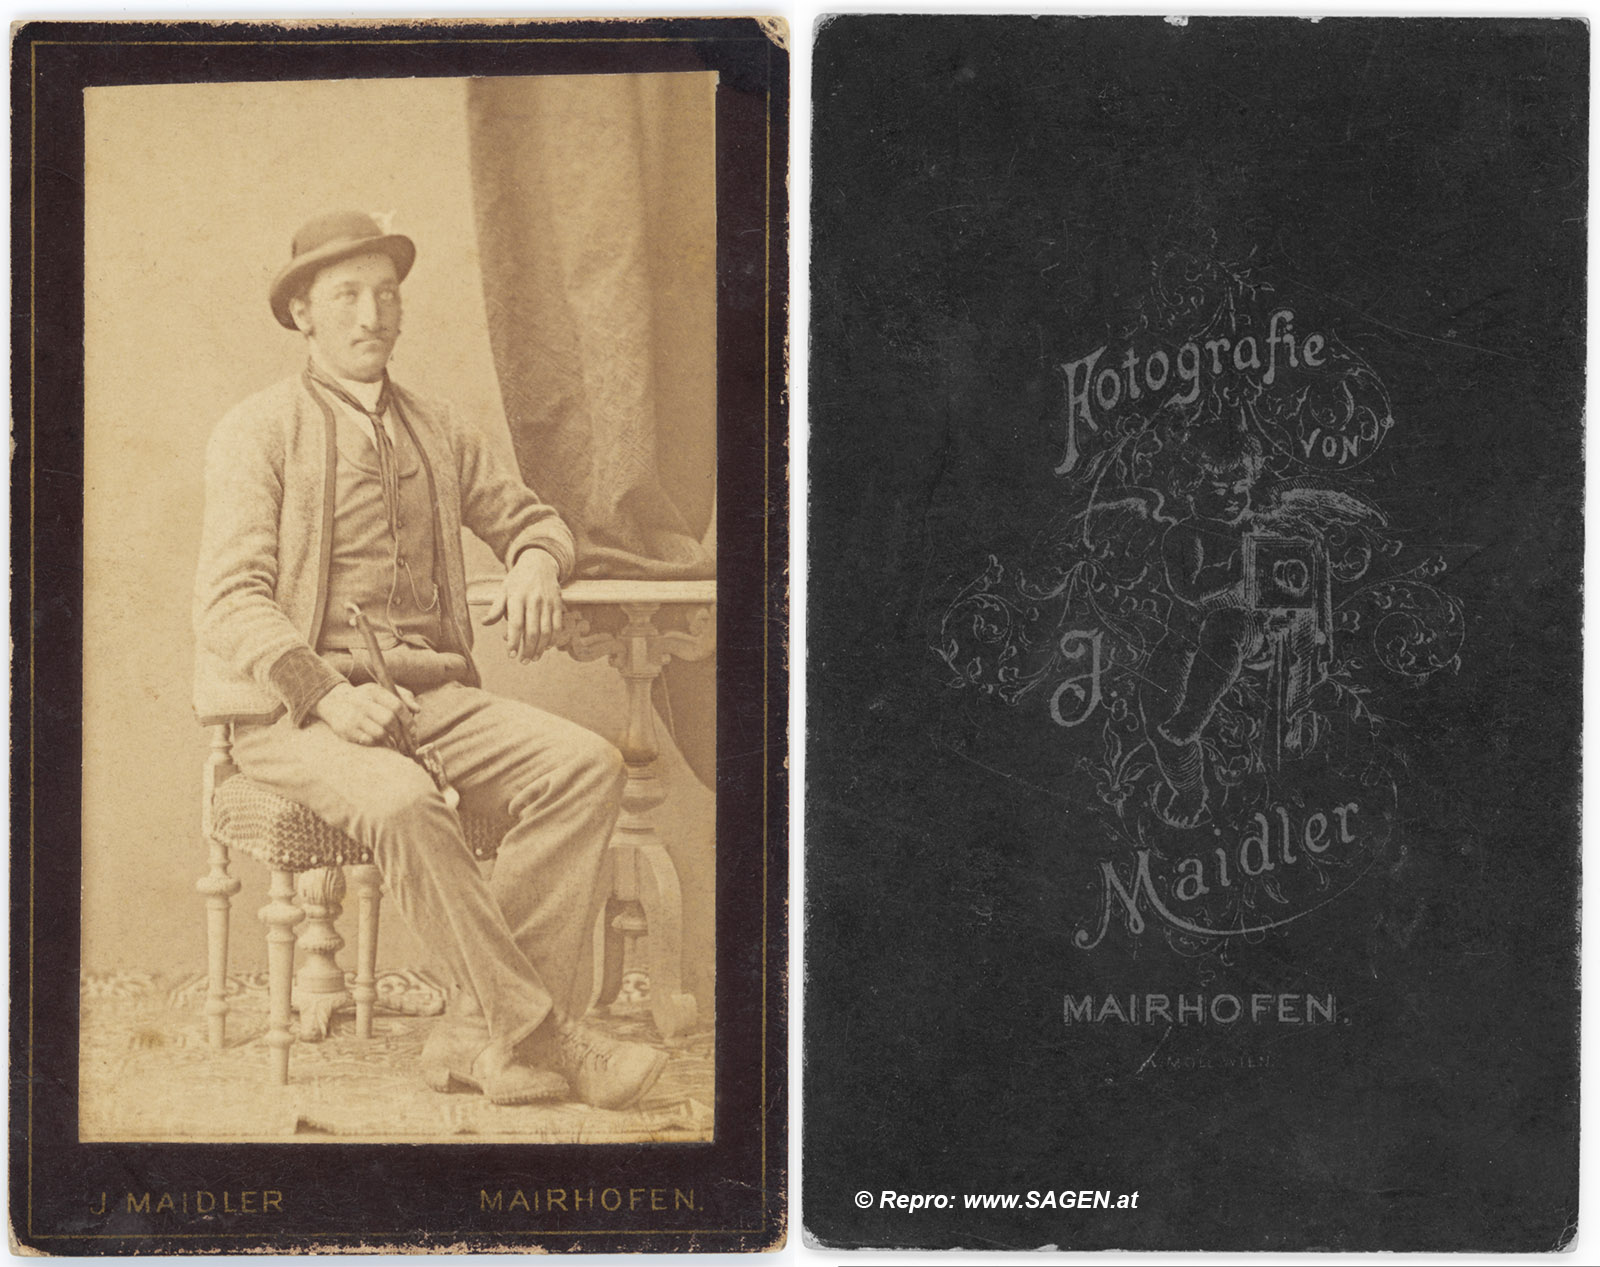 J MAIDLER MAIRHOFEN.
Fotografie
VON
J.
Maidler
MAIRHOFEN.
WIEN.
© Repro: www.SAGEN.at